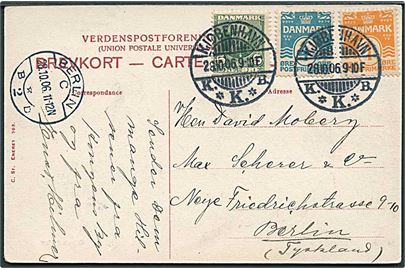 VERDENSPOSTFORENINGEN
(UNION POSTALE UNIVERSELLE)
BREVKORT — CARTE
Correspondance
Adresse
DANMARK
DANMARK
DANMARK
KJØBENHAVN
28.10.06. 9-10F
K. K. B
KJØBENHAVN
28.10.06. 9-10F
K. K. B
BERLIN
C
10.06. 11-12N
B 2 b
Herr David Moberg
Max Scherer & Co
Neye Friedrichstrasse 9-10
Berlin
(Tyskland)
Sender Dem
mange Hil-
sener fra
Kongens By
og fra
C. St. Eneret